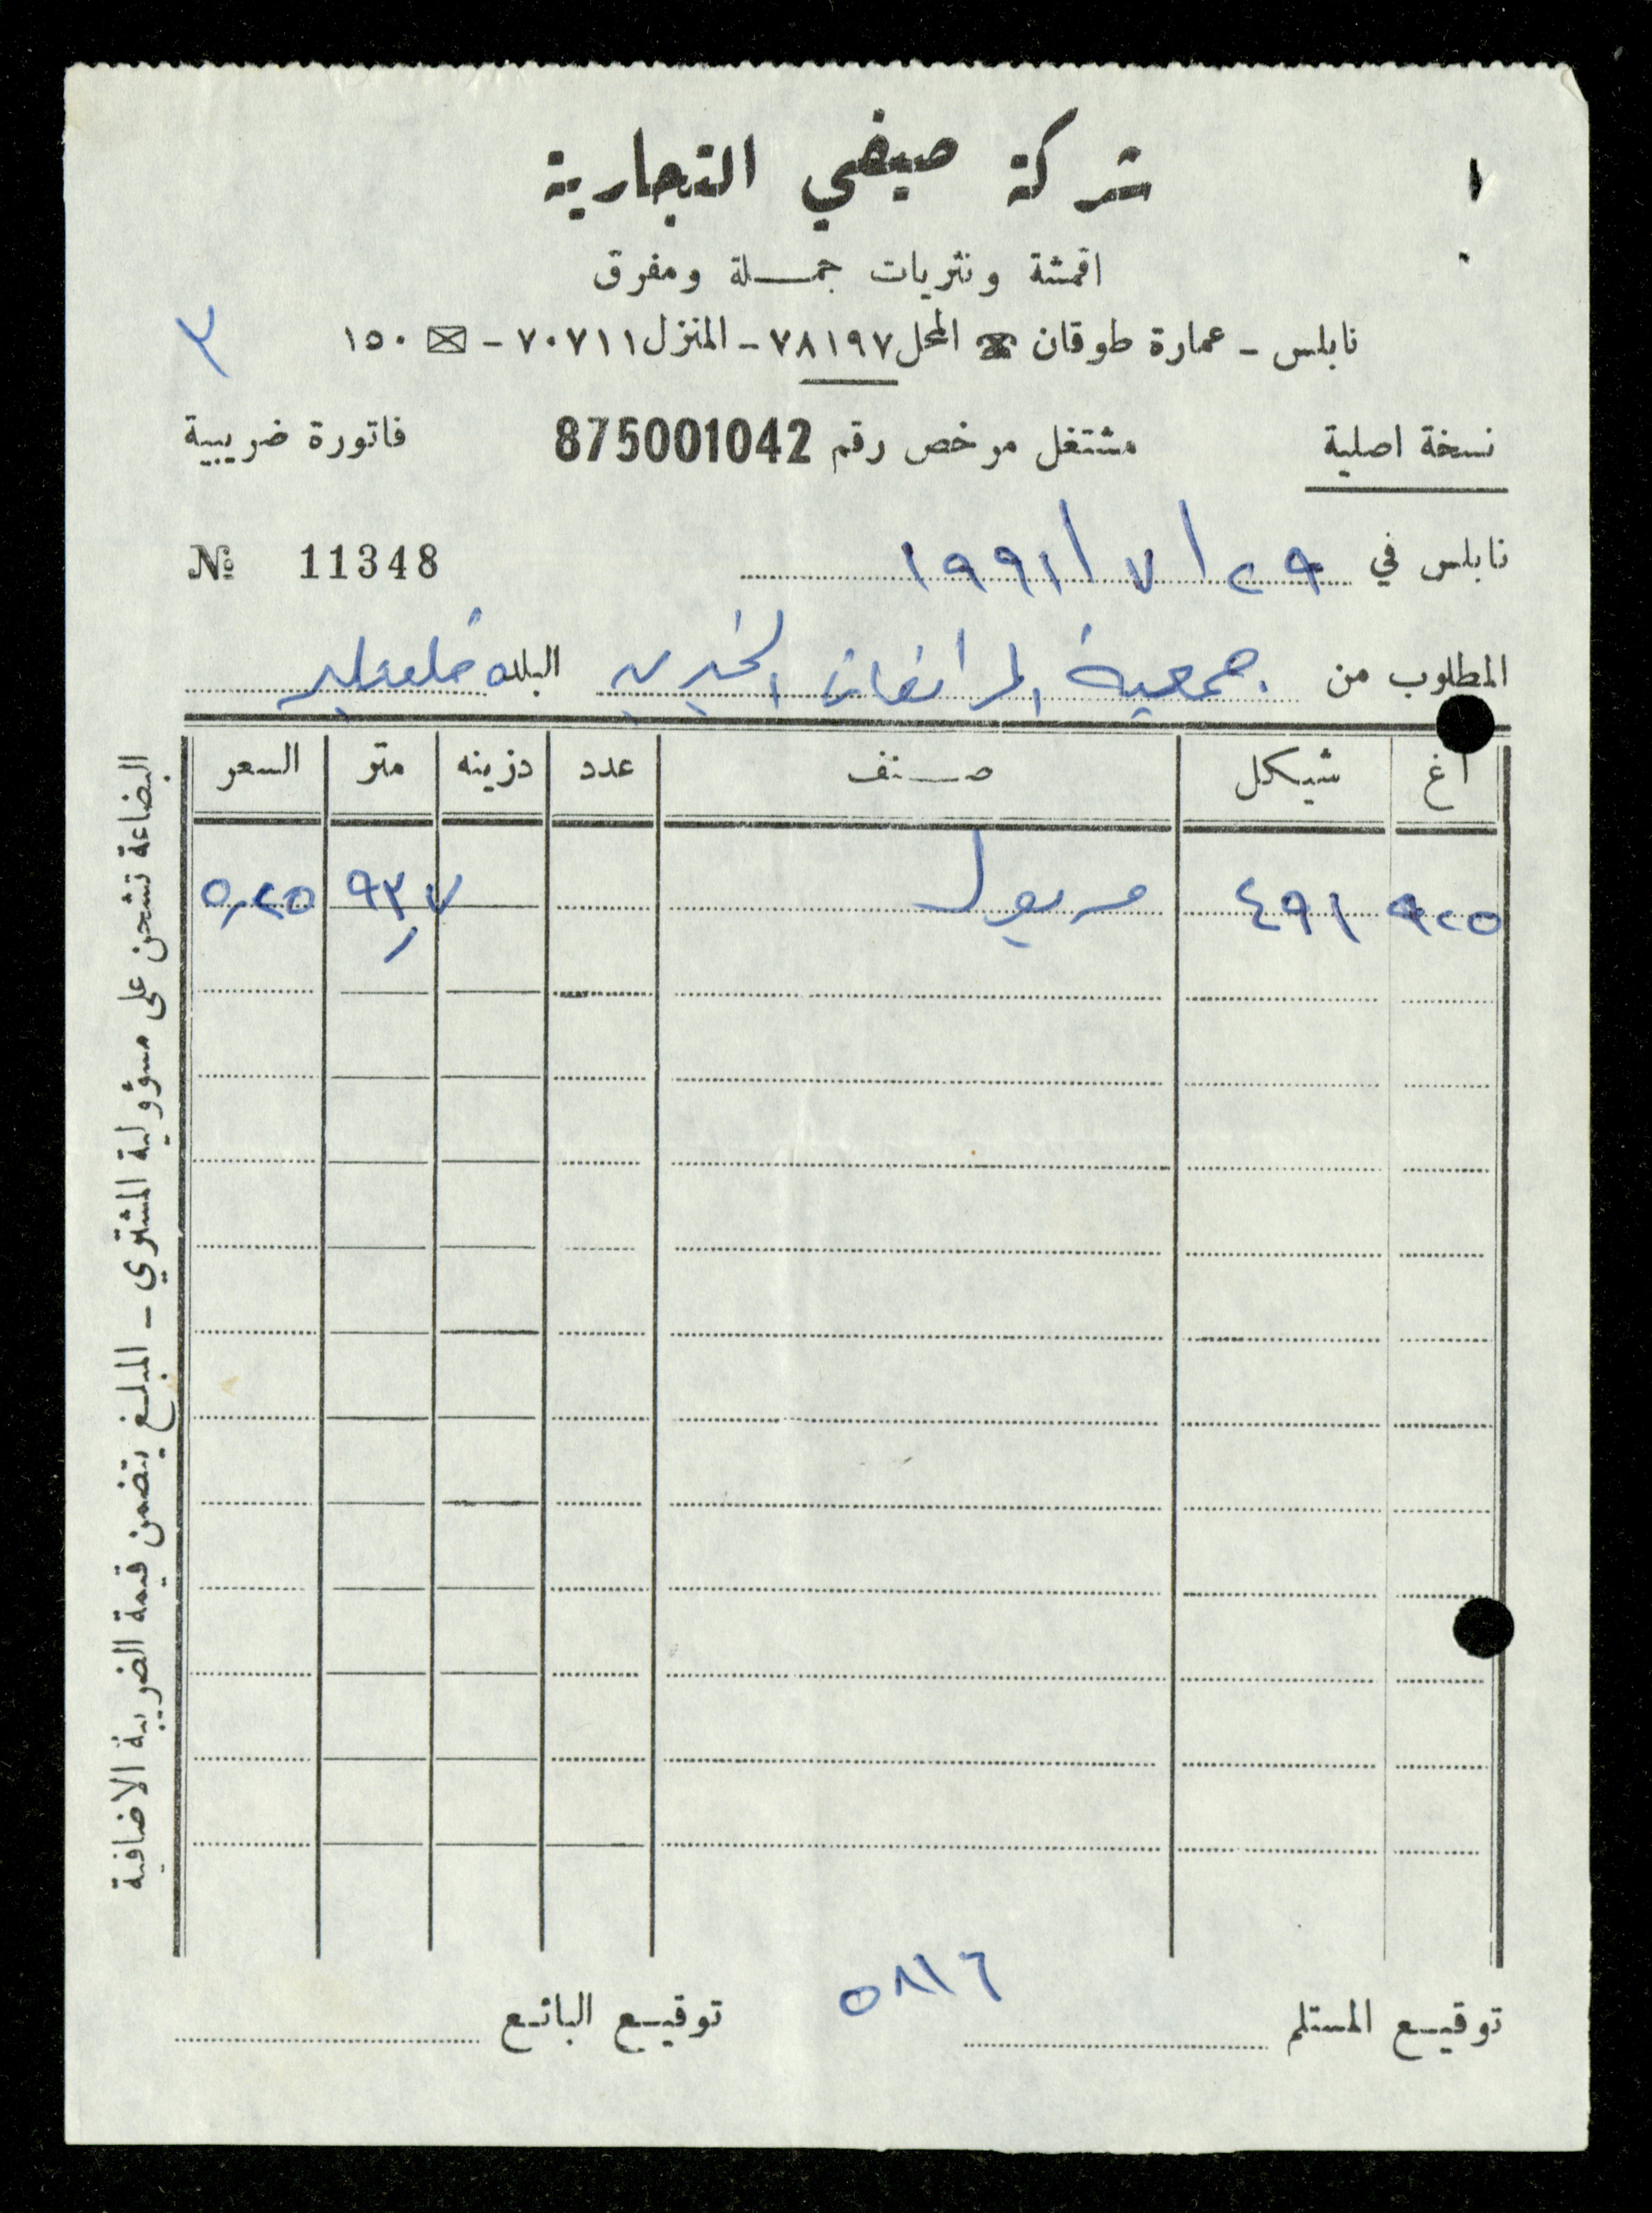 شركة صيفي التجارية
اقمشة ونثريات جملة ومفرق
نابلس - عمارة طوقان ☎ المحل ٧٨١٩٧ - المنزل ٧٠٧١١ - ✉ ١٥٠
٢
نسخة اصلية
مشتغل مرخص رقم 875001042
فاتورة ضريبية
نابلس في ٢٩ / ٧ / ١٩٩١
№ 11348
المطلوب من جمعية المرابطات الخيرية البلده قلقيلية
اغ شيكل صنف عدد دزينه متر السعر
٩٢٥ ٤٩١ مريول ٩٣,٧ ٥,٢٥
البضاعة تشحن على مسؤولية المشتري - المبلغ يتضمن قيمة الضريبة الاضافية
٥٨١٦
توقيع المستلم
توقيع البائع